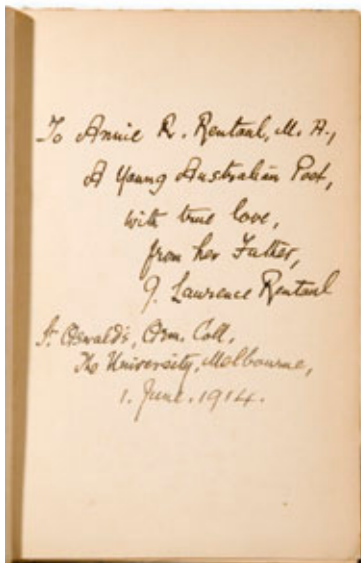 To Annie R. Rentoul, M.A.,
A Young Australian Poet,
with true love,
from her Father,
J. Laurence Rentoul
St. Oswald's, Orm. Coll.
The University, Melbourne,
1. June. 1914.